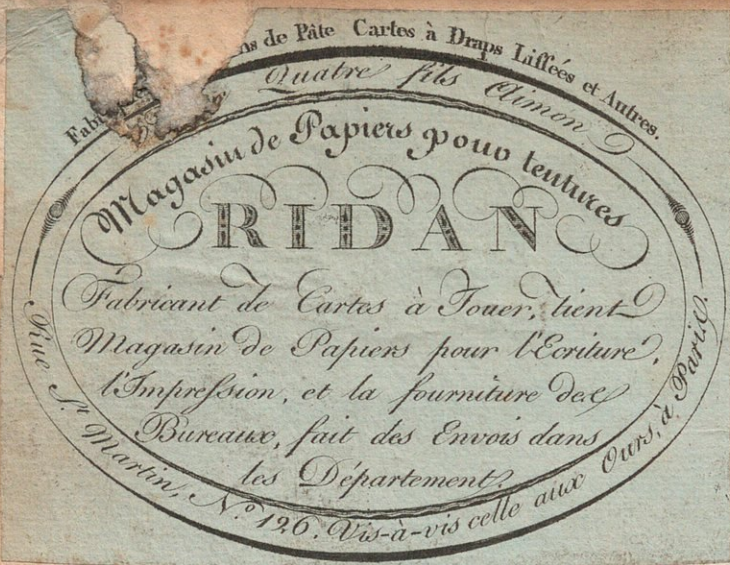 ns de Pâte Cartes à Draps Lissées et Autres.
Quatre fils Aimon
Magasin de Papiers pour tentures
RIDAN
Fabricant de Cartes à Jouer, tient
Magasin de Papiers pour l'Ecriture,
l'Impression, et la fourniture des
Bureaux, fait des Envois dans
les Département.
Rue St. Martin, No. 126. Vis-à-vis celle aux Ours, à Paris.